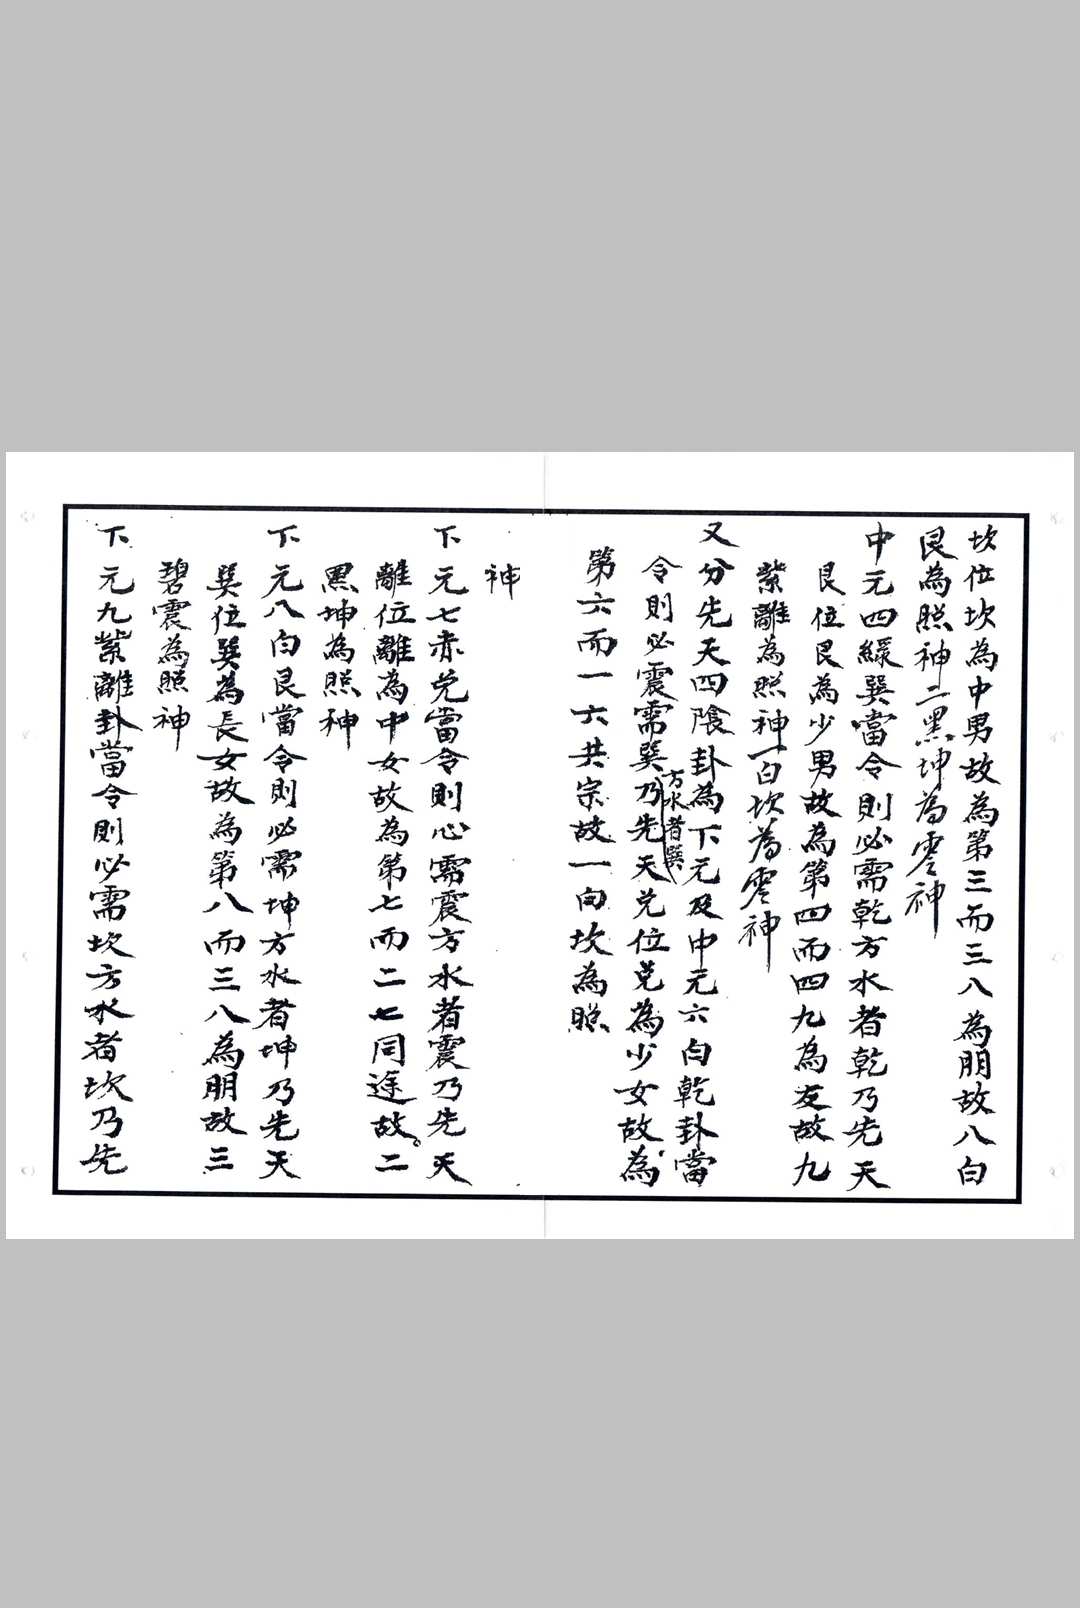 坎位坎為中男故為第三而三八為朋故八白
艮為照神二黑坤為零神
中元四緑巽當令則必需乾方水者乾乃先天
艮位艮為少男故為第四而四九為友故九
紫離為照神一白坎為零神
又分先天四陰卦為下元及中元六白乾卦當
令則必震需巽方水者巽乃先天兌位兌為少女故為
第六而一六共宗故一白坎為照
神
下元七赤兌當令則必需震方水者震乃先天
離位離為中女故為第七而二七同途故二
黑坤為照神
下元八白艮當令則必需坤方水者坤乃先天
巽位巽為長女故為第八而三八為朋故三
碧震為照神
下元九紫離卦當令則必需坎方水者坎乃先